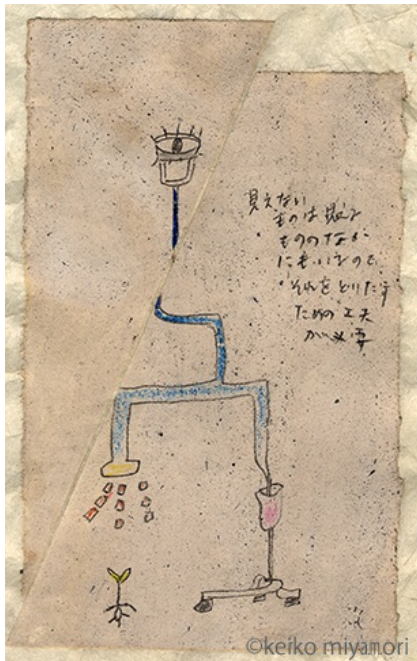 見えない
ものは見える
もののなか
にもいるので
それをとりだす
ための工夫
が必要
©keiko miyamori